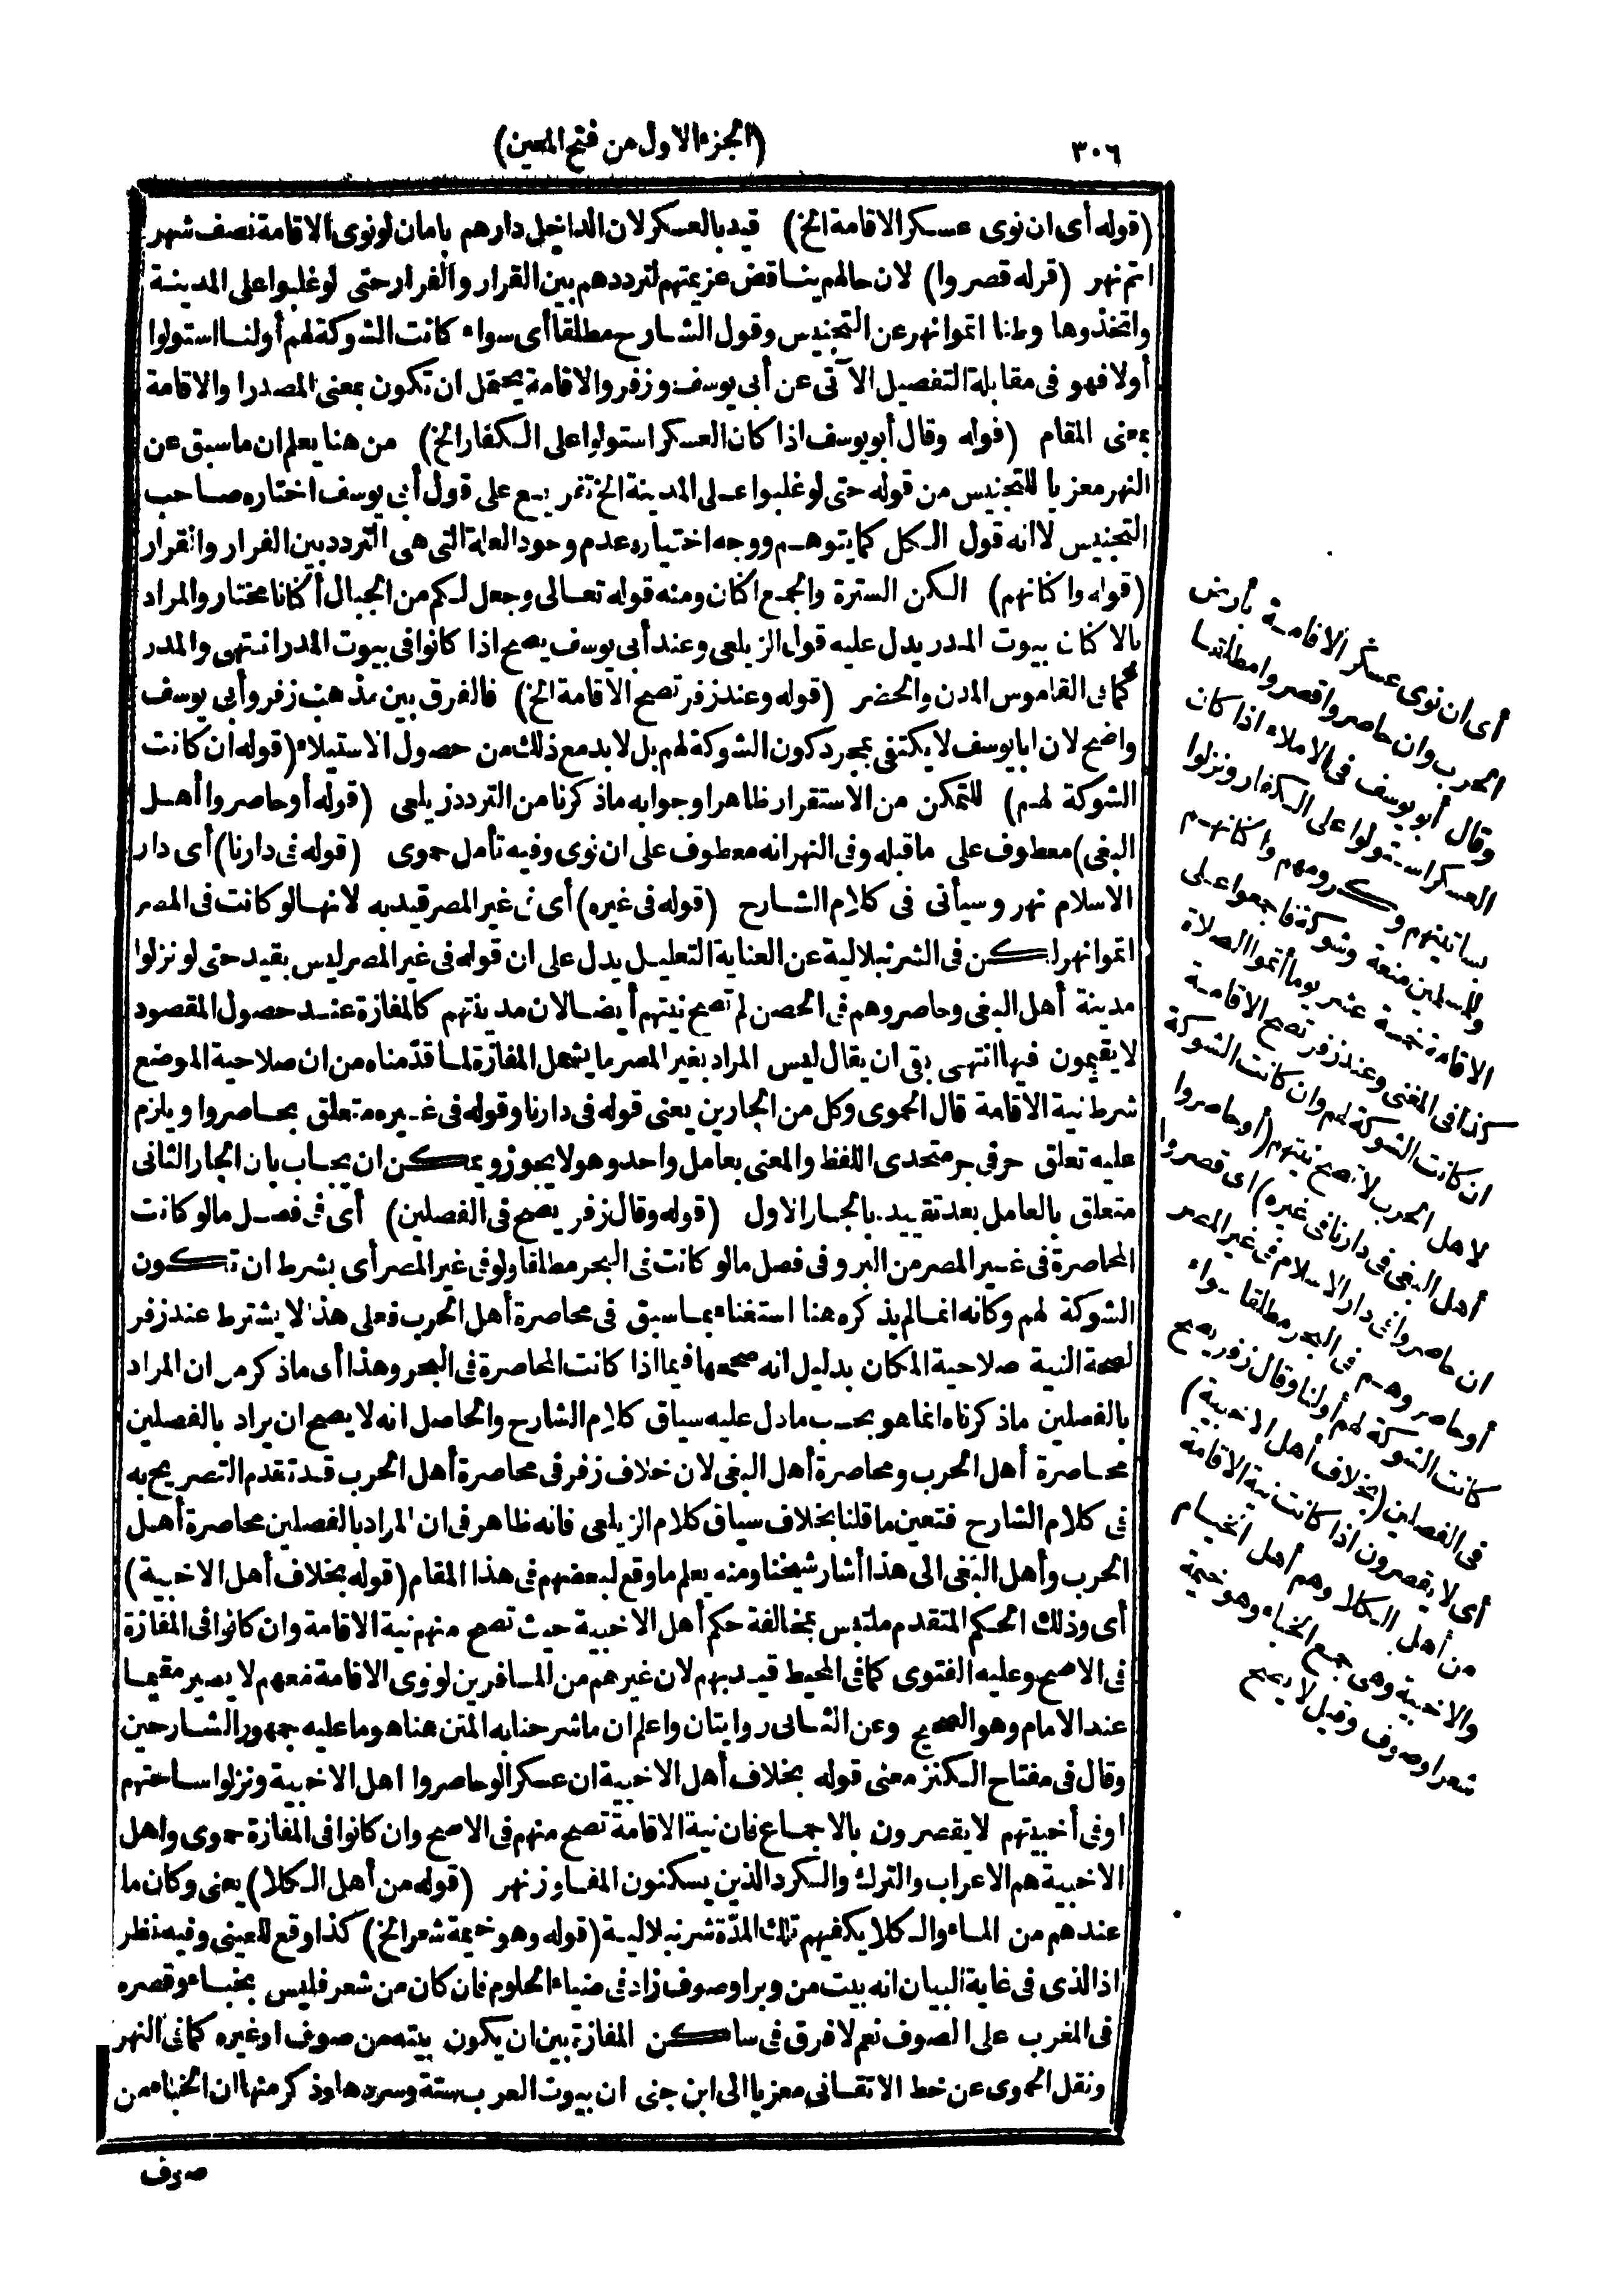 ٣٠٦
(الجزء الاول من فتح المعين)
(قوله أى ان نوى عسكر الاقامة الخ) قيد بالعسكر لان الداخل دارهم بامان لو نوى الاقامة نصف شهر
اتم نهر (قوله قصروا) لان حالهم يناقض عزيمتهم لترددهم بين القرار والفرار حتى لو غلبوا على المدينة
واتخذوها وطنا اتموا نهر عن التجنيس وقول الشارح مطلقا أى سواء كانت الشوكة لهم أو لنا استولوا
أولا فهو فى مقابلة التفصيل الآتى عن أبى يوسف وزفر والاقامة يحتمل ان تكون بمعنى المصدر او الاقامة
بمعنى المقام (قوله وقال أبو يوسف اذا كان العسكر استولوا على الكفار الخ) من هنا يعلم ان ما سبق عن
النهر معزيا للتجنيس من قوله حتى لو غلبوا على المدينة الخ تفريع على قول أبى يوسف اختاره صاحب
التجنيس لا انه قول الكل كما يتوهم ووجه اختياره عدم وجود العلة التى هى التردد بين الفرار والقرار
(قوله واكنانهم) الكن السترة والجمع اكنان ومنه قوله تعالى وجعل لكم من الجبال أكنانا مختار والمراد
بالاكنان بيوت المدر يدل عليه قول الزيلعى وعند أبى يوسف يصح اذا كانوا فى بيوت المدر انتهى والمدر
كما فى القاموس المدن والحضر (قوله وعند زفر تصح الاقامة الخ) فالفرق بين مذهب زفر وأبى يوسف
واضح لان ابا يوسف لا يكتفى بمجرد كون الشوكة لهم بل لابد مع ذلك من حصول الاستيلاء (قوله ان كانت
الشوكة لهم) للتمكن من الاستقرار ظاهرا وجوابه ماذكرنا من التردد زيلعى (قوله أو حاصروا أهل
البغى) معطوف على ما قبله وفى النهر انه معطوف على ان نوى وفيه تأمل حموى (قوله فى دارنا) أى دار
الاسلام نهر وسيأتى فى كلام الشارح (قوله فى غيره) أى فى غير المصر قيد به لانها لو كانت فى المصر
اتموا نهر لكن فى الشرنبلالية عن العناية التعليل يدل على ان قوله فى غير المصر ليس بقيد حتى لو نزلوا
مدينة أهل البغى وحاصروهم فى الحصن لم تصح نيتهم أيضا لان مدينتهم كالمفازة عند حصول المقصود
لا يقيمون فيها انتهى بقى ان يقال ليس المراد بغير المصر ما يشمل المفازة لما قدّمناه من ان صلاحية الموضع
شرط نية الاقامة قال الحموى وكل من الجارين يعنى قوله فى دارنا وقوله فى غيره متعلق بحاصروا ويلزم
عليه تعلق حرفى جر متحدى اللفظ والمعنى بعامل واحد وهو لا يجوز ويمكن ان يجاب بان الجار الثانى
متعلق بالعامل بعد تقييده بالجار الاول (قوله وقال زفر يصح فى الفصلين) أى فى فصل ما لو كانت
المحاصرة فى غير المصر من البر وفى فصل ما لو كانت فى البحر مطلقا ولو فى غير المصر أى بشرط ان تكون
الشوكة لهم وكانه انما لم يذكره هنا استغناء بما سبق فى محاصرة أهل الحرب فعلى هذا لا يشترط عند زفر
لصحة النية صلاحية المكان بدليل انه صححها فيما اذا كانت المحاصرة فى البحر وهذا أى ماذكر من ان المراد
بالفصلين ماذكرناه انما هو بحسب ما دل عليه سياق كلام الشارح والحاصل انه لا يصح ان يراد بالفصلين
محاصرة أهل الحرب ومحاصرة أهل البغى لان خلاف زفر فى محاصرة أهل الحرب قد تقدم التصريح به
فى كلام الشارح فتعين ما قلنا بخلاف سياق كلام الزيلعى فانه ظاهر فى ان المراد بالفصلين محاصرة أهل
الحرب وأهل البغى الى هذا أشار شيخنا ومنه يعلم ما وقع لبعضهم فى هذا المقام (قوله بخلاف أهل الاخبية)
أى وذلك الحكم المتقدم ملتبس بمخالفة حكم أهل الاخبية حيث تصح منهم نية الاقامة وان كانوا فى المفازة
فى الاصح وعليه الفتوى كما فى المحيط قيد بهم لان غيرهم من المسافرين لو نوى الاقامة معهم لا يصير مقيما
عند الامام وهو الصحيح وعن الثانى روايتان واعلم ان ما شرحنا به المتن هنا هو ما عليه جمهور الشارحين
وقال فى مفتاح الكنز معنى قوله بخلاف أهل الاخبية ان عسكرا لو حاصروا اهل الاخبية ونزلوا ساحتهم
او فى أخبيتهم لا يقصرون بالاجماع فان نية الاقامة تصح منهم فى الاصح وان كانوا فى المفازة حموى واهل
الاخبية هم الاعراب والترك والكرد الذين يسكنون المفاوز نهر (قوله من أهل الكلا) يعنى وكان ما
عندهم من الماء والكلا يكفيهم تلك المدّة شرنبلالية (قوله وهو خيمة شعر الخ) كذا وقع للعينى وفيه نظر
اذ الذى فى غاية البيان انه بيت من وبر او صوف زاد فى ضياء الحلوم فان كان من شعر فليس بخباء وقصره
فى المغرب على الصوف نعم لا فرق فى ساكن المفازة بين ان يكون بيته من صوف او غيره كما فى النهر
ونقل الحموى عن خط الاتقانى معزيا الى ابن جنى ان بيوت العرب ستة وسردها وذكر منها ان الخباء من
صوف
أى ان نوى عسكر الاقامة بأرض
الحرب وان حاصروا قصروا مطلقا
وقال أبو يوسف فى الاملاء اذا كان
العسكر استولوا على الكفار ونزلوا
بساتينهم وكرومهم واكنانهم
وللمسلمين منعة وشوكة فاجمعوا على
الاقامة خمسة عشر يوما أتموا الصلاة
كذا فى المغنى وعند زفر تصح الاقامة
ان كانت الشوكة لهم وان كانت الشوكة
لاهل الحرب لا تصح نيتهم (أو حاصروا
أهل البغى فى دارنا فى غيره) اى قصروا
ان حاصروا فى دار الاسلام فى غير المصر
أو حاصروهم فى البحر مطلقا سواء
كانت الشوكة لهم أو لنا وقال زفر يصح
فى الفصلين (بخلاف أهل الاخبية)
أى لا يقصرون اذا كانت نية الاقامة
من أهل الكلا وهم أهل الخيام
والاخبية وهى جمع الخباء وهو خيمة
شعر او صوف وقيل لا يصح